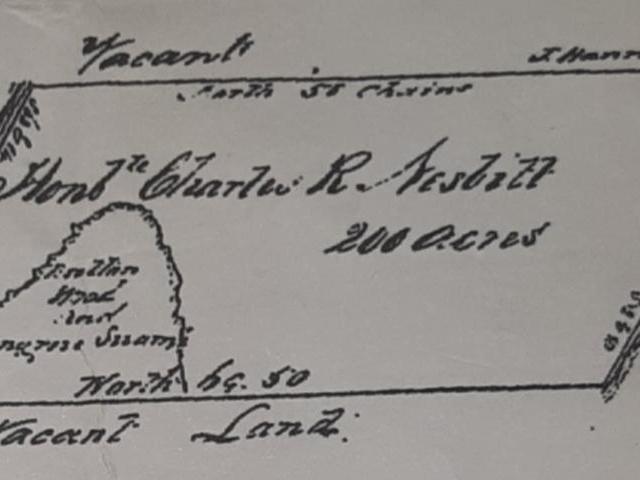 Vacant
J. Hann
North 55 Chains
Honble Charles R. Nesbitt
200 Acres
Wood
And
Swamp
North hg. 50
Vacant Land.